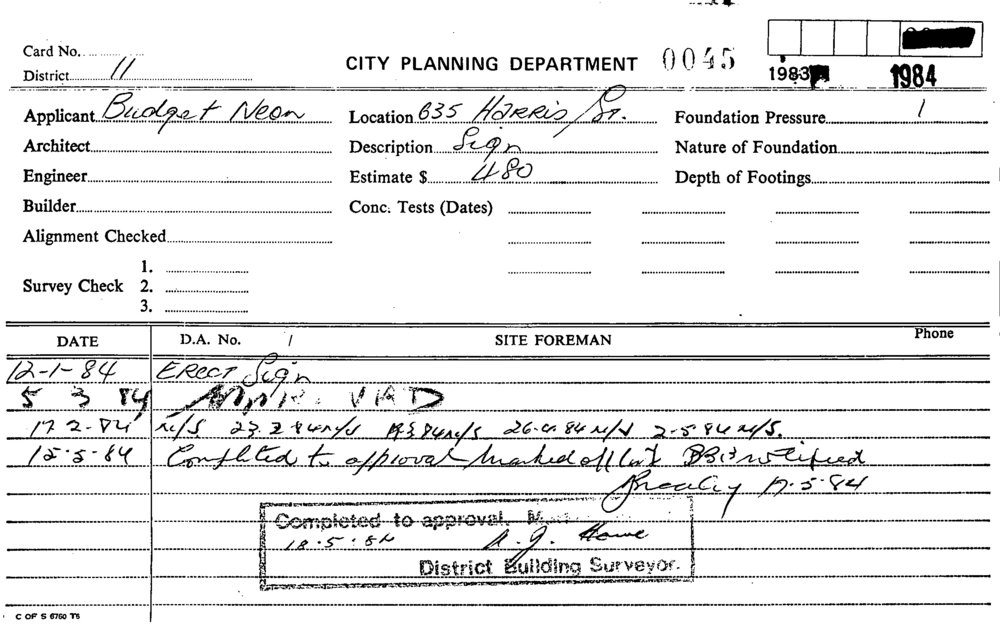 Card No.
District 11
CITY PLANNING DEPARTMENT 0045
1983 1984
Applicant Budget Neon Location 635 HARRIS St. Foundation Pressure /
Architect Description Sign Nature of Foundation
Engineer Estimate $ 480 Depth of Footings
Builder Conc. Tests (Dates)
Alignment Checked
Survey Check 1.
2.
3.
DATE D.A. No. / SITE FOREMAN Phone
12-1-84 ERECT Sign
5 3 84
17.2.84 N/S 23.2.84 N/S 19.3.84 N/S 26.4.84 N/S 2.5.84 N/S.
15.5.84 Completed to approval marked off list notified
17.5.84
Completed to approval.
18.5.84
District Building Surveyor.
C OF S 6760 TS